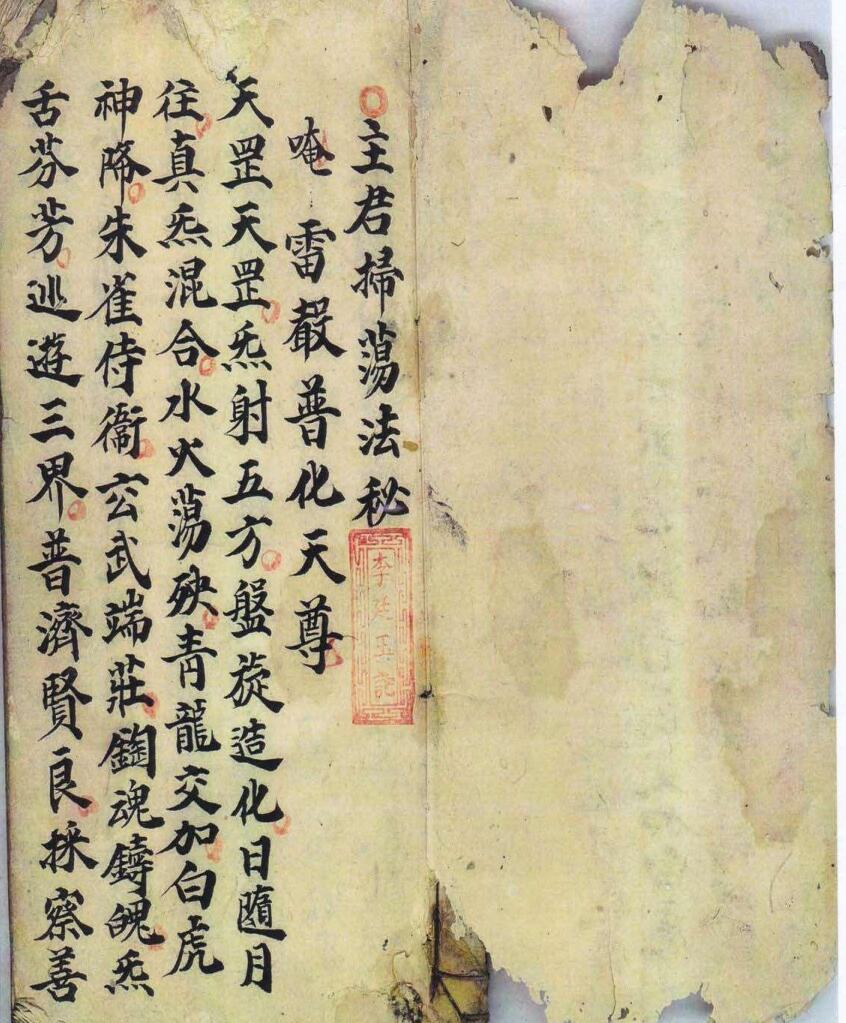 主君掃蕩法秘
李廷玉記
唵 雷聲普化天尊
天罡天罡炁射五方盤旋造化日隨月
往真炁混合水火蕩殃青龍交加白虎
神降朱雀侍衞玄武端莊鍧魂鑄魄炁
舌芬芳巡遊三界普濟賢良採察善